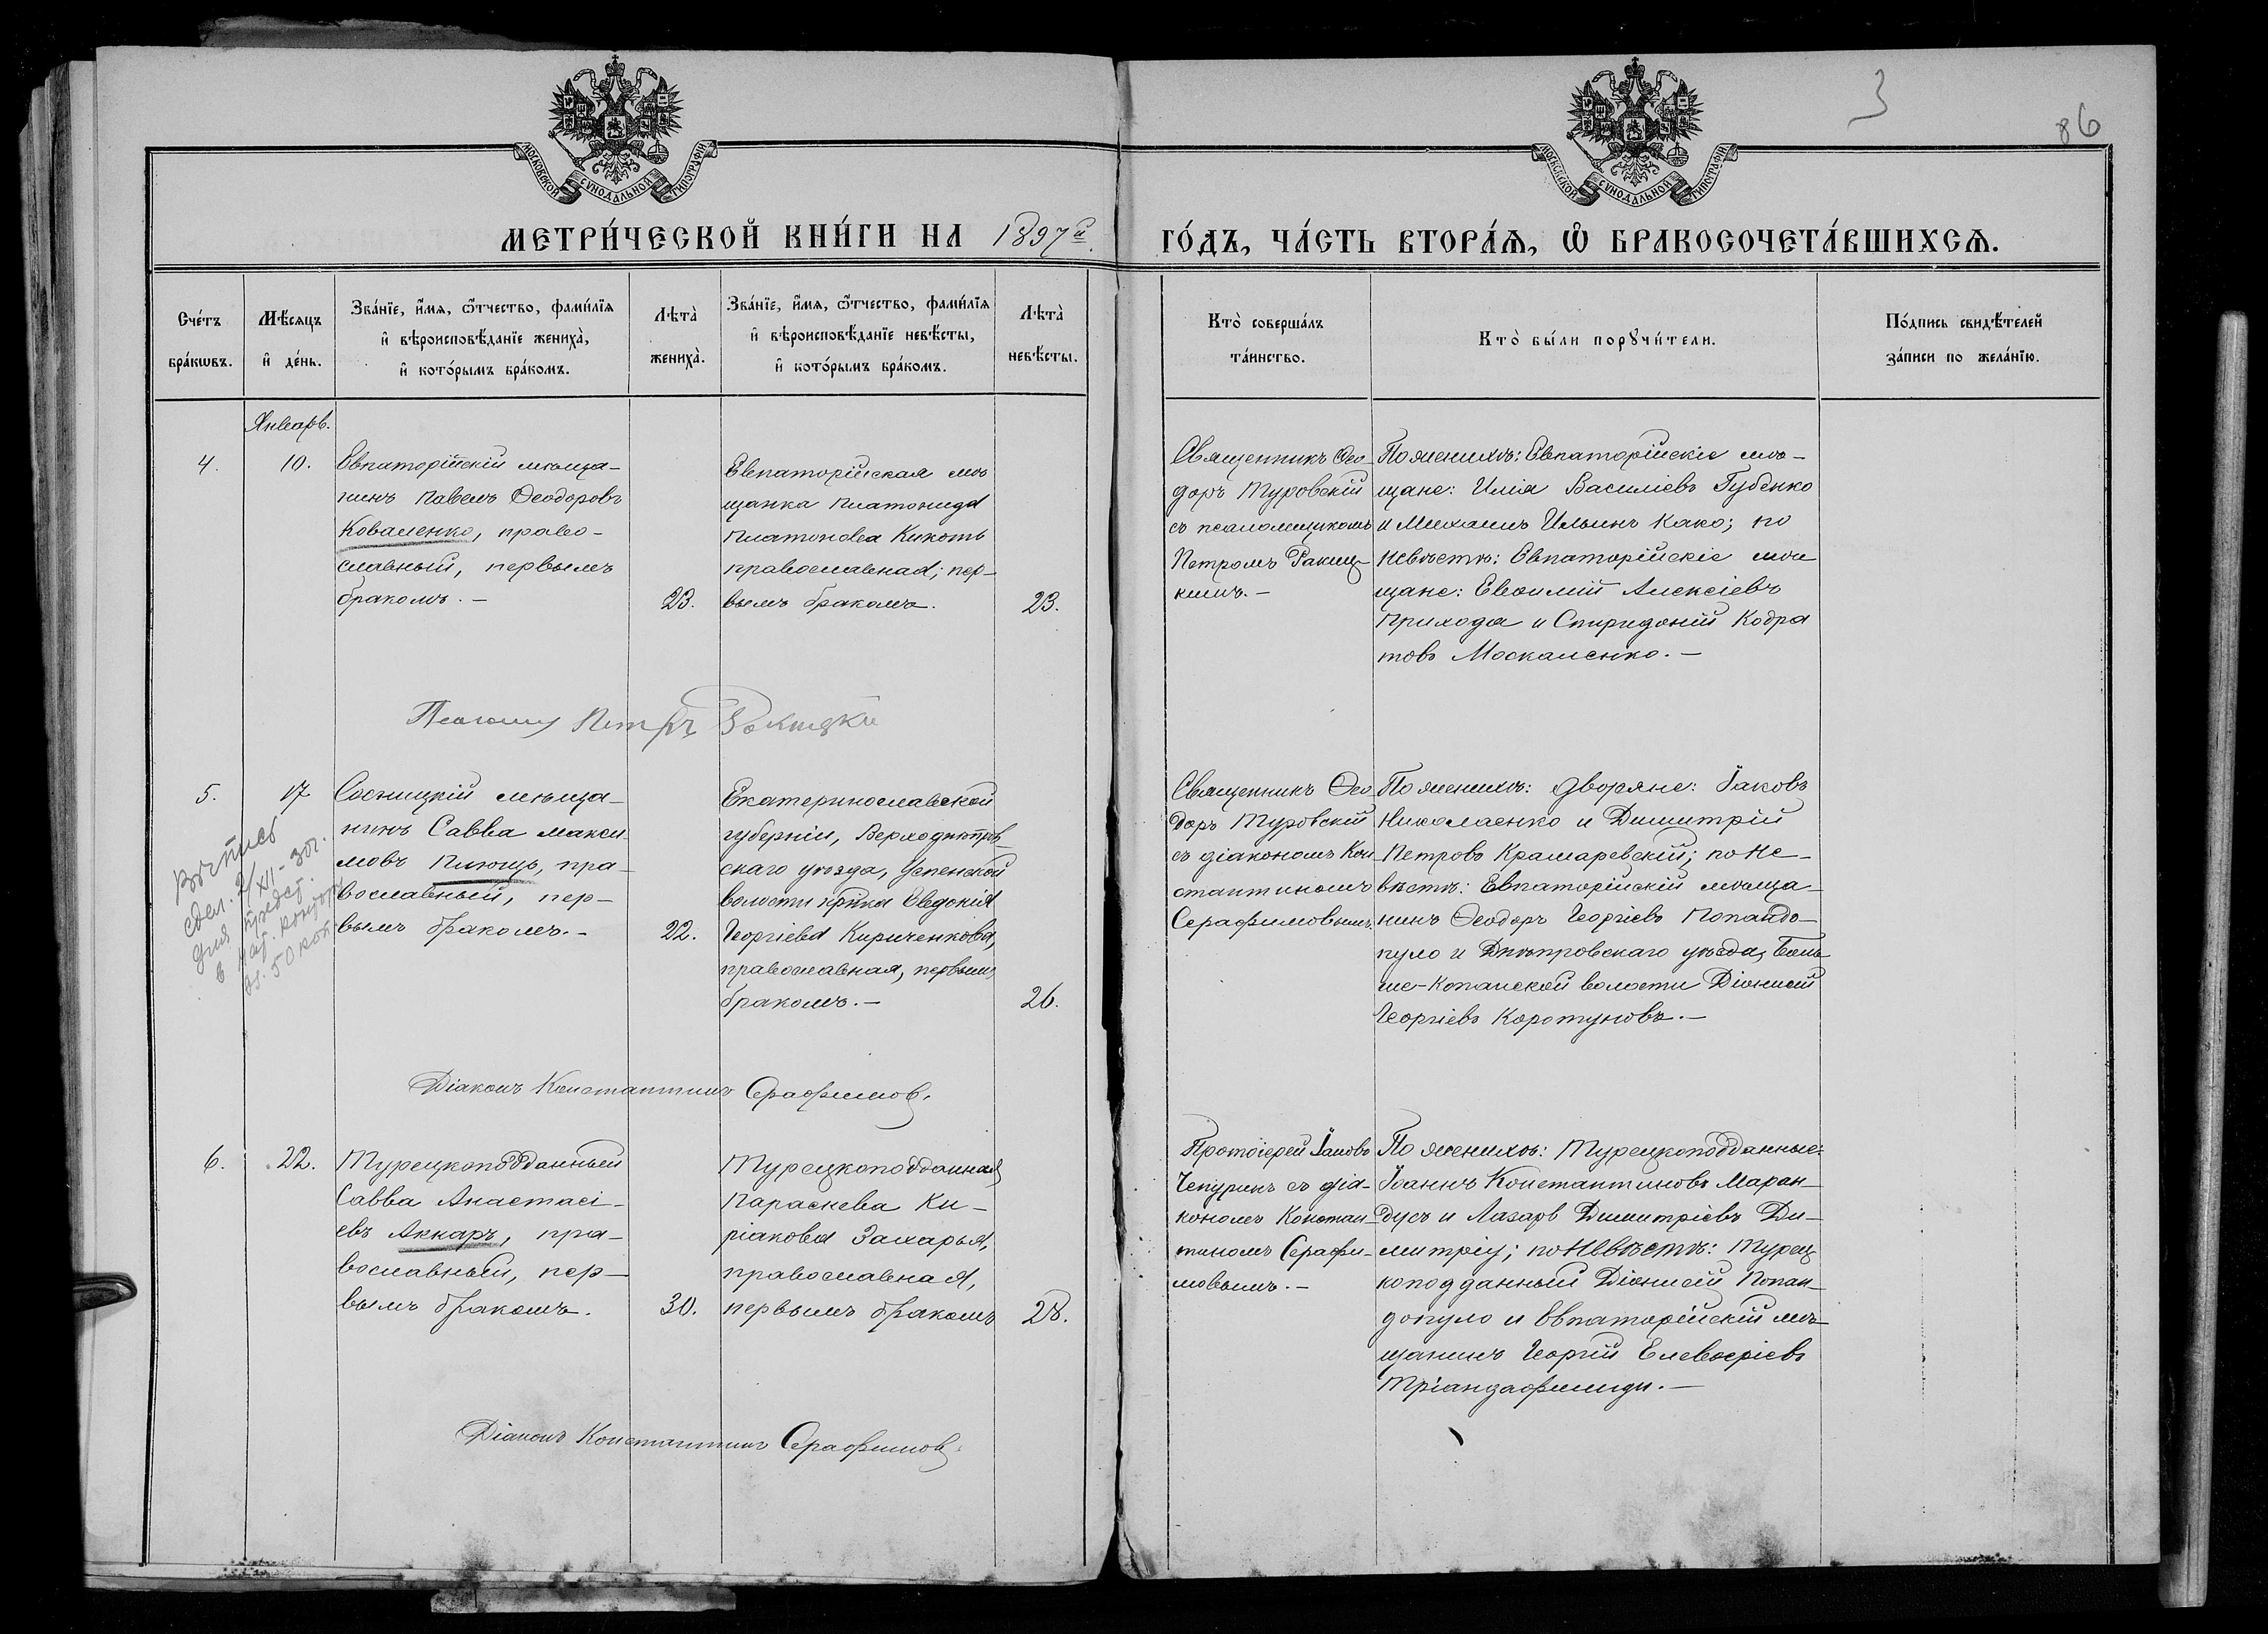 3
86
МОСКОВСКОЙ СУНОДАЛЬНОЙ ТИПОГРАФІИ
МОСКОВСКОЙ СУНОДАЛЬНОЙ ТИПОГРАФІИ
МЕТРИ́ЧЕСКОЙ КНИ́ГИ НА 1897й
ГО́ДЪ, ЧА́СТЬ ВТОРА́Ѧ, Ѽ БРАКОСОЧЕТА́ВШИХСѦ.
Сче́тъ
бра́кѡвъ.
Мѣ́сяцъ
и҆ де́нь.
Зва́нїе, и҆́мя, ѻ҆́тчество, фами́лїя
и҆ вѣроисповѣ́данїе жениха̀,
и҆ кото́рымъ бра́комъ.
Лѣ́та̀
жениха̀.
Зва́нїе, и҆́мя, ѻ҆́тчество, фами́лїя
и҆ вѣроисповѣ́данїе невѣ́сты,
и҆ кото́рымъ бра́комъ.
Лѣ́та̀
невѣ́сты.
Кто̀ соверша́лъ
та́инство.
Кто̀ бы́ли порꙋчи́тели.
По́дпись свидѣ́телей
за́писи по жела́нїю.
Январь.
4.
10.
Евпаторійскій мѣща-
нинъ Павелъ Ѳеодоровъ
Коваленко, право-
славный, первымъ
бракомъ. -
23.
Евпаторійская мѣ
щанка Платонида
Платонова Кикоть
православная; пер-
вымъ бракомъ.
23.
Священникъ Ѳео-
доръ Туровскій
съ псаломщикомъ
Петромъ
По женихѣ: Евпаторійскіе мѣ-
щане: Илія Василіевъ Губенко
и Михаилъ Ильинъ Како; по
невѣстѣ: Евпаторійскіе мѣ
щане: Евѳимій Алексіевъ
Прихода и Спиридоній Кодра
товъ Москаленко. -
Петръ
5.
17
Сосницкій мѣща-
нинъ Савва Макси
мовъ Плющъ, пра-
вославный, пер-
вымъ бракомъ. -
22.
Екатеринославской
губерніи, Верходнѣпров-
скаго уѣзда, Успенской
волости кр-нка Евдокія
Георгіева Кириченкова,
православная, первымъ
бракомъ. -
26.
Священникъ Ѳео
доръ Туровскій
съ діакономъ Кон-
стантиномъ
Серафимовымъ.
По женихѣ: дворяне: Іаковъ
Николаенко и Димитрій
Петровъ Крамаревскій; по не-
вѣстѣ: Евпаторійскій мѣща-
нинъ Ѳеодоръ Георгіевъ Попандо-
пуло и Днѣпровскаго уѣзда, Боль
ше-Копанской волости Діонисій
Георгіевъ Коротуновъ. -
выпись
сдел. 2/XI-30г.
для предст.
в контору
50 коп.
Діаконъ Константинъ Серафимовъ.
6.
22.
Турецкоподданный
Савва Анастасі-
евъ Аккаръ, пра-
вославный, пер-
вымъ бракомъ.
30.
Турецкоподданная
Параскева Ки-
ріакова Захарья,
православная,
первымъ бракомъ
28.
Протоіерей Іаковъ
Чепуринъ съ діа-
кономъ Констан-
тиномъ Серафи-
мовымъ. -
По женихѣ: Турецкоподданные:
Іоаннъ Константиновъ Маран-
дусъ и Лазарь Димитріевъ Ди-
митріу; по невѣстѣ: Турец
коподданный Діонисій Попан-
допуло и Евпаторійскій мѣ-
щанинъ Георгій Елевѳеріевъ
Тріандафилиди. -
Діаконъ Константинъ Серафимовъ.